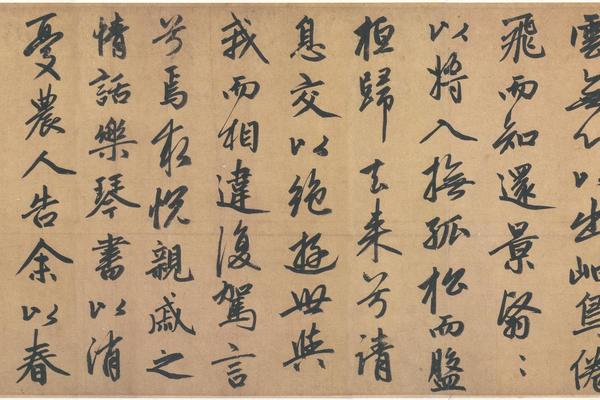 雲無心以出岫鳥倦
飛而知還景翳〻
以將入撫孤松而盤
桓歸去来兮請
息交以絶遊世與
我而相違復駕言
兮焉求悦親戚之
情話樂琴書以消
憂農人告余以春